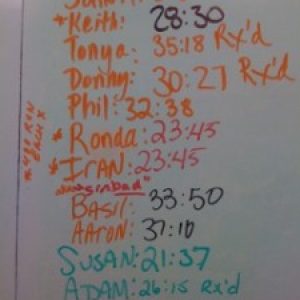 *Keith: 28:30
Tonya: 35:18 Rx'd
Donny: 30:27 Rx'd
Phil: 32:38
*Ronda: 23:45
*IRAN: 23:45
"sinbad"
BASIL: 33:50
AARON: 37:10
SUSAN: 21:37
ADAM: 26:15 Rx'd
RUN